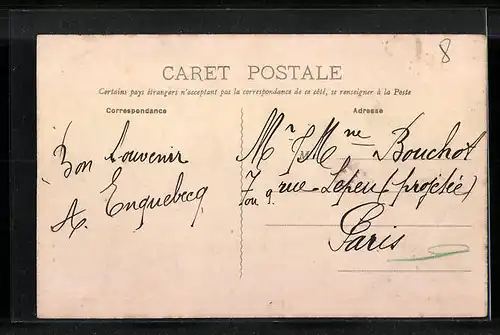 8
CARET POSTALE
Certains pays étrangers n'acceptent pas la correspondance de ce côté, se renseigner à la Poste
Correspondance
Adresse
Bon Souvenir
A. Enquebecq
Mr & Mme Bouchot
7 ou 9. rue Lepeu (projetée)
Paris